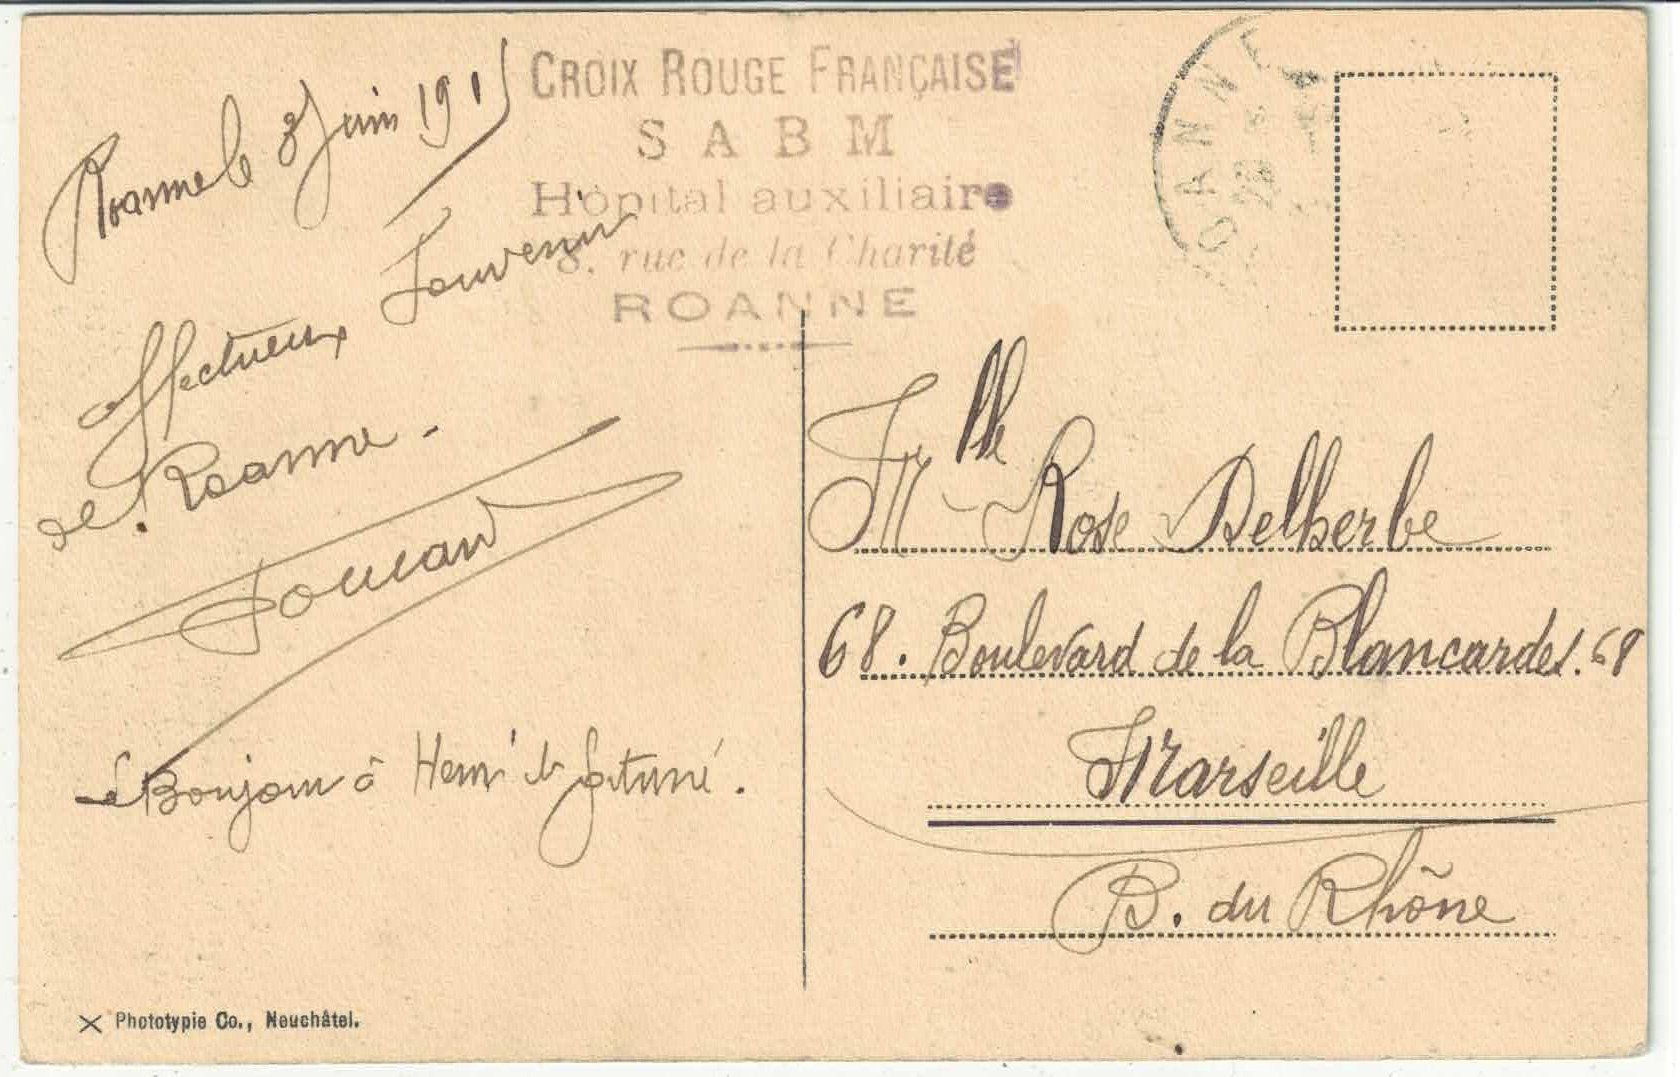 Roanne le 3 Juin 1915
CROIX ROUGE FRANÇAISE
S A B M
Hôpital auxiliaire
8. rue de la Charité
ROANNE
ROANNE
Affectueux Souvenir
de Roanne -
Mlle Rose Delherbe
68. Boulevard de la Blancardes. 68
Marseille
B. du Rhône
Le Bonjour à Henri et fortuné.
Phototypie Co., Neuchâtel.